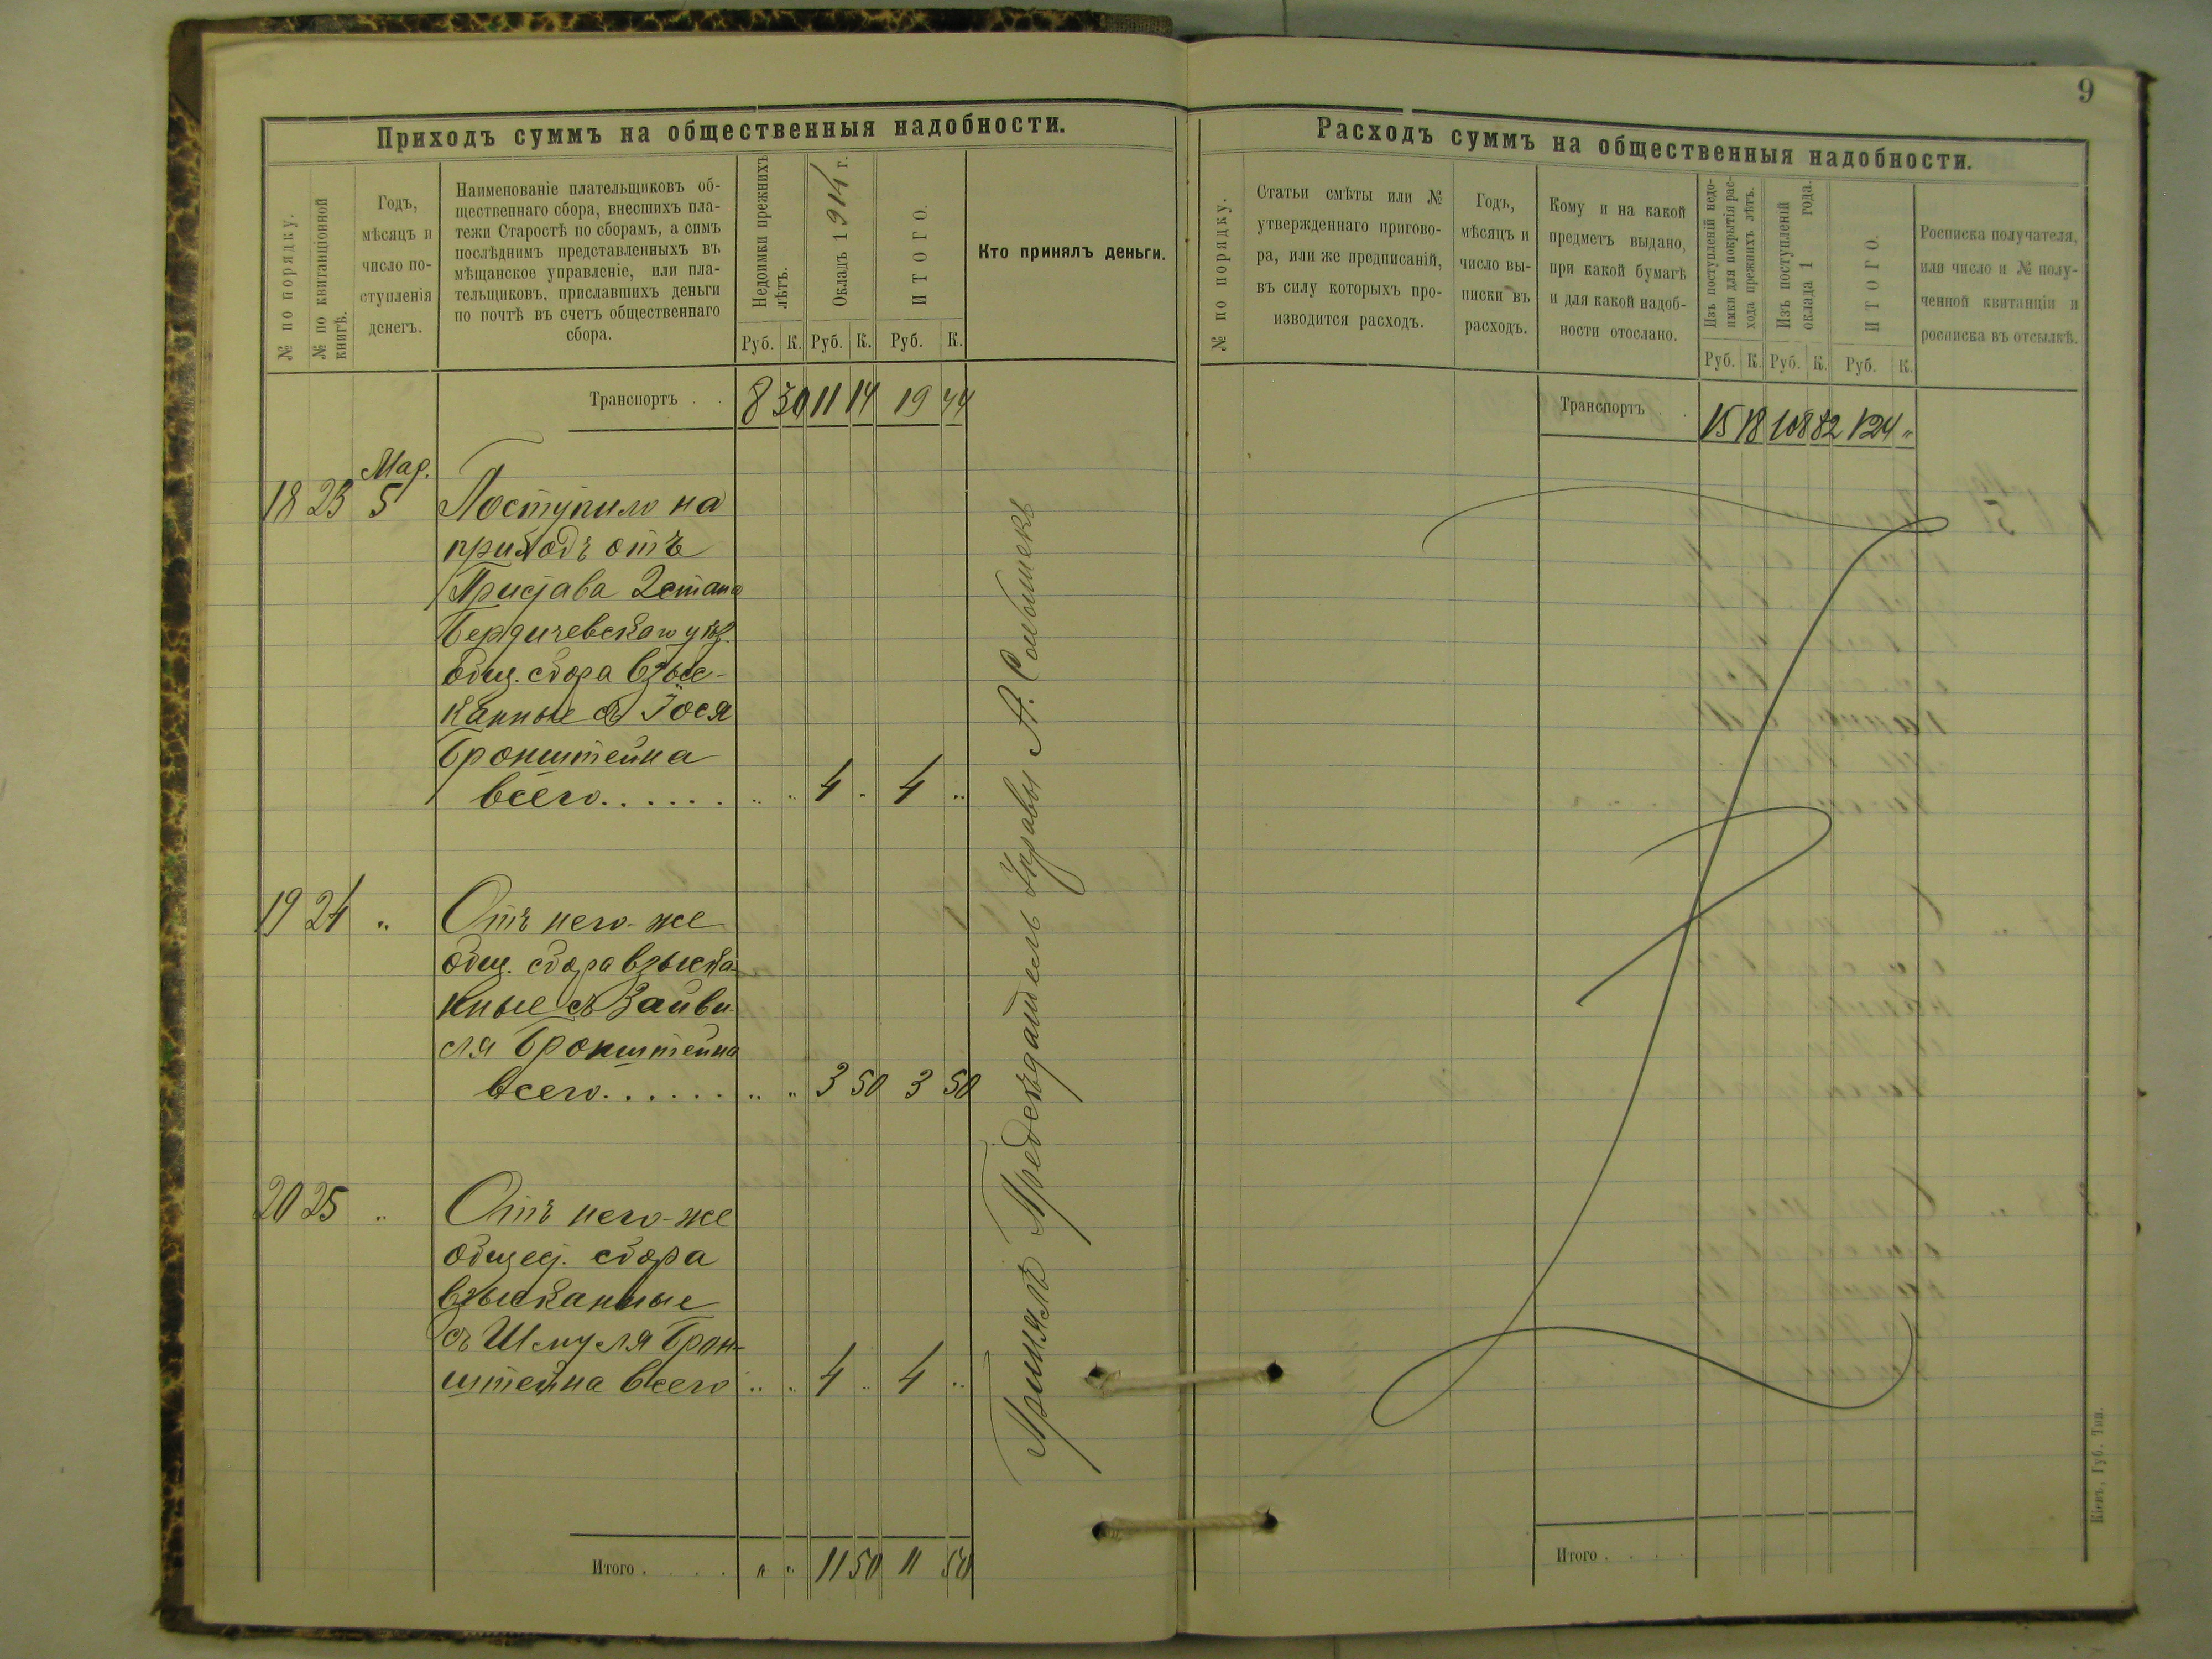 9
Приходъ суммъ на общественныя надобности.
№ по порядку.
№ по квитанціонной
книгѣ.
Годъ,
мѣсяцъ и
число по-
ступленія
денегъ.
Наименованіе плательщиковъ об-
щественнаго сбора, внесшихъ пла-
тежи Старостѣ по сборамъ, а симъ
послѣднимъ представленныхъ въ
мѣщанское управленіе, или пла-
тельщиковъ, приславшихъ деньги
по почтѣ въ счетъ общественнаго
сбора.
Недоимки прежнихъ
лѣтъ.
Окладъ 1914 г.
ИТОГО.
Кто принялъ деньги.
Руб. К. Руб. К. Руб. К.
Транспортъ . . 8 30 11 14 19 44
Мар.
18 23 5 Поступило на
приходъ отъ
Пристава 2 стана
Бердичевскаго уѣз.
общ. сбора взыс-
канные съ Іося
Бронштейна
всего...... " " 4 " 4 "
19 24 " Отъ него-же
общ. сбора взыска-
нные съ Зайви-
ля Бронштейна
всего...... " " 3 50 3 50
20 25 " Отъ него-же
общест. сбора
взысканные
съ Шмуля Брон-
штейна всего " " 4 " 4 "
Принялъ Предсѣдатель Управы А.
Итого . . . . " " 11 50 11 50
Расходъ суммъ на общественныя надобности.
№ по порядку.
Статьи смѣты или №
утвержденнаго пригово-
ра, или же предписаній,
въ силу которыхъ про-
изводится расходъ.
Годъ,
мѣсяцъ и
число вы-
писки въ
расходъ.
Кому и на какой
предметъ выдано,
при какой бумагѣ
и для какой надоб-
ности отослано.
Изъ поступленій недо-
имки для покрытія рас-
хода прежнихъ лѣтъ.
Изъ поступленій
оклада 1 года.
ИТОГО.
Росписка получателя,
или число и № полу-
ченной квитанціи и
росписка въ отсылкѣ.
Руб. К. Руб. К. Руб. К.
Транспортъ . . 15 18 108 82 124 "
Итого . . . .
Кіевъ, Губ. Тип.